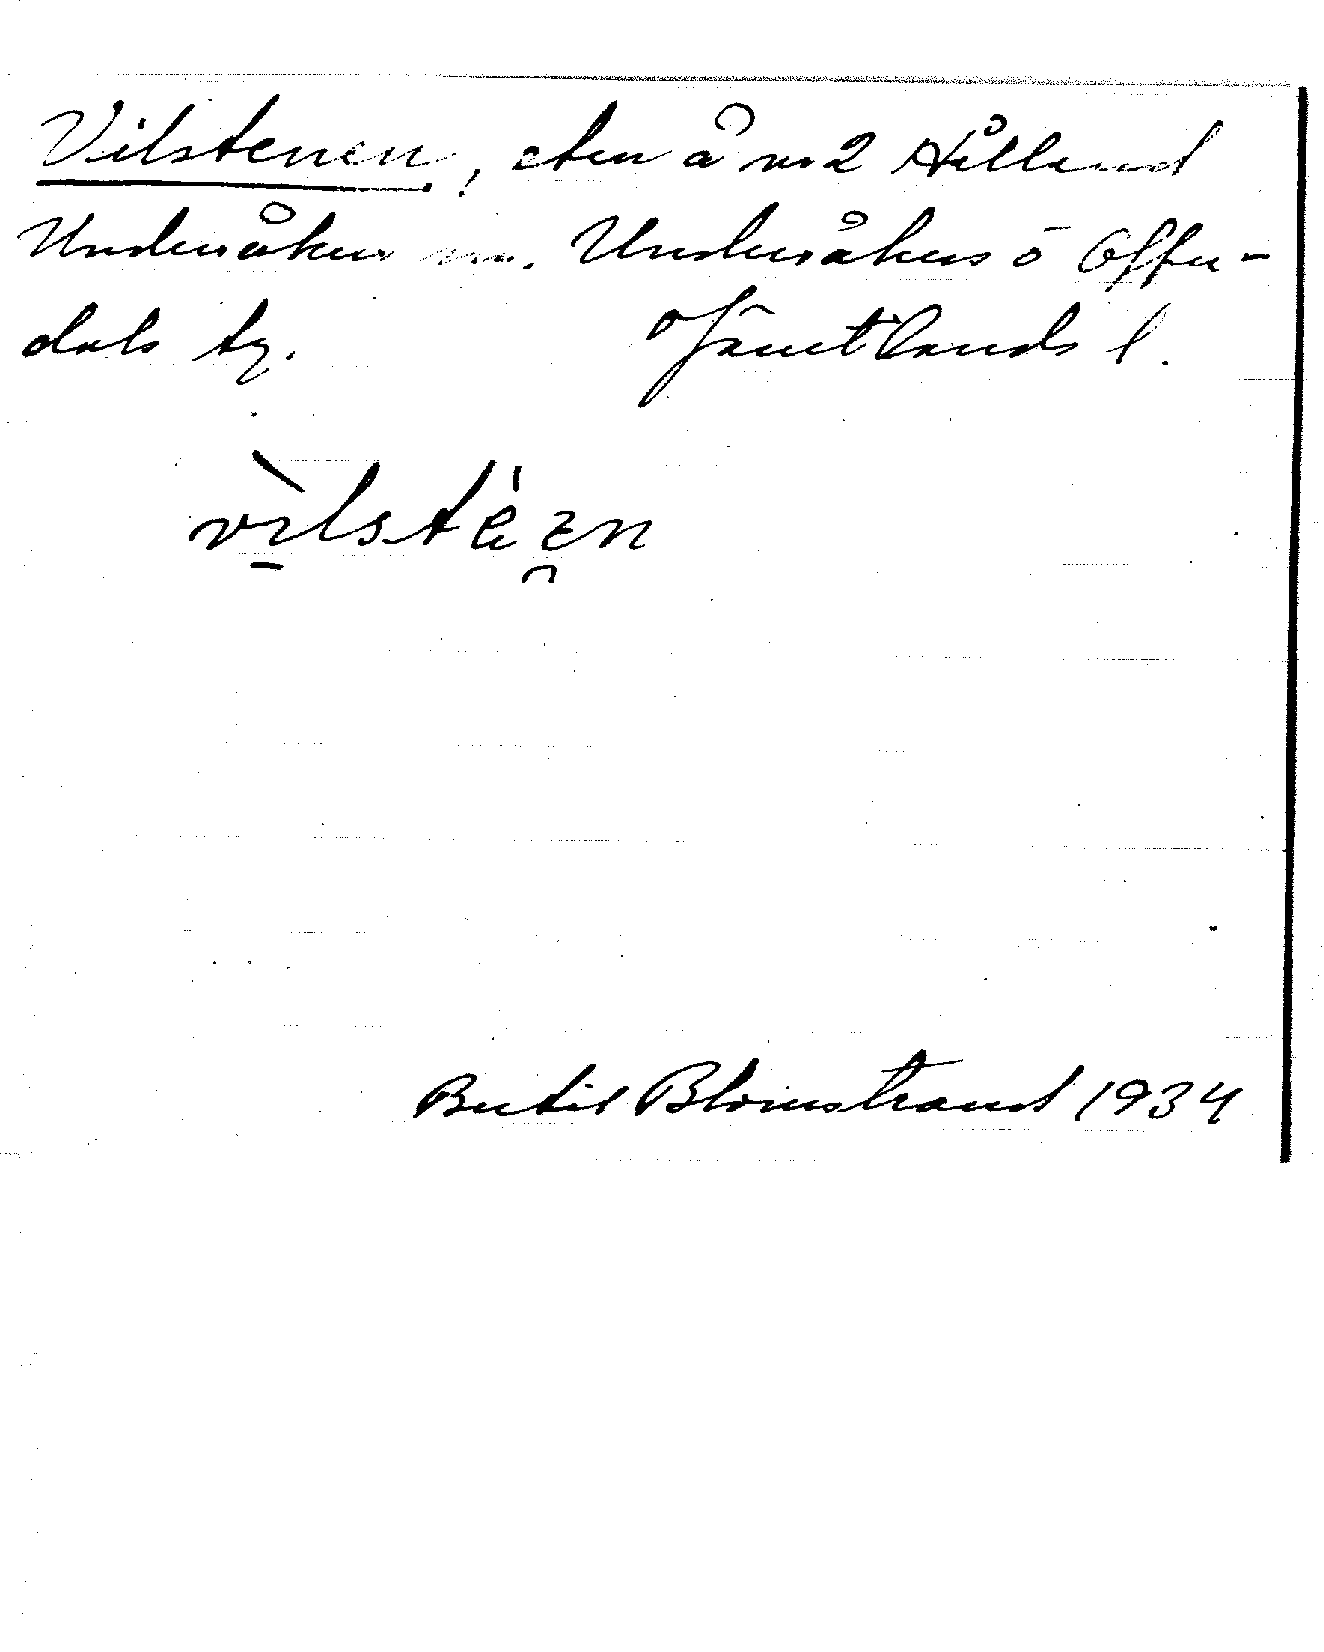 Vilstenen, sten å nr 2 Hålland
Undersåkers sn. Undersåkers o Offer-
dals tg. Jämtlands l.
vìlstèɛn
Bertil Blomstrand 1934